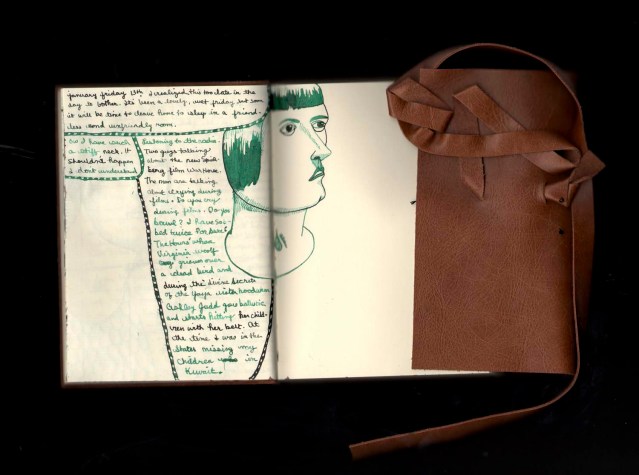 january friday 13th. I realized this too late in the
day to bother. It's been a lovely, wet friday but soon
it will be time to leave home to sleep in a friend-
less and unfriendly room.
I have such
a stiff neck. It
shouldn't happen
I dont understand
Listening to the radio.
Two guys talking
about the new Spiel-
berg film War Horse.
The men are talking
about crying during
films. Do you cry
during films. Do you
bawl? I have sob-
bed twice
The Hours when
Virginia Woolf
grieves over
a dead bird and
during the divine secrets
of the Yaya sisterhood when
Ashley Judd goes ballistic
and starts hitting her child-
ren with her belt. At
the time I was in the
States missing my
children in
Kuwait.